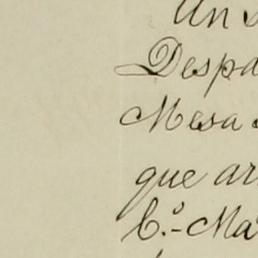 Un
Despa
Mesa
que ar
C.º- Ma